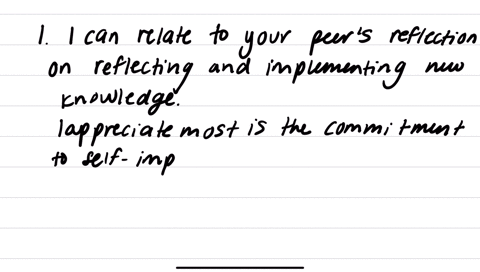 1. I can relate to your peer's reflection
on reflecting and implementing new
knowledge.
I appreciate most is the commitment
to self-imp